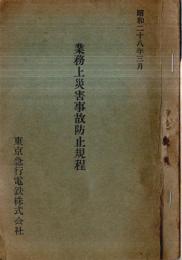 昭和二十八年三月
業務上災害事故防止規程
東京急行電鉄株式会社